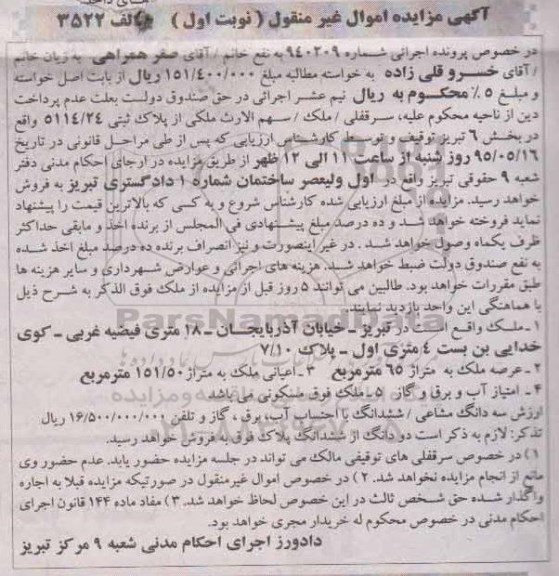 آگهی مزایده اموال غیر منقول ( نوبت اول ) م الف ۳۵۲۲
در خصوص پرونده اجرائی شماره ۹۴۰۲۰۹ به نفع خانم / آقای صفر همراهی به زیان خانم
/ آقای خسرو قلی زاده به خواسته مطالبه مبلغ ۱۵۱/۴۰۰/۰۰۰ ریال از بابت اصل خواسته
و مبلغ ۵ ٪ محکوم به ریال نیم عشر اجرائی در حق صندوق دولت بعلت عدم پرداخت
دین از ناحیه محکوم علیه، سرقفلی / ملک / سهم الارث ملکی از پلاک ثبتی ۵۱۱۴/۲۴ واقع
در بخش ۶ تبریز توقیف و توسط کارشناس ارزیابی که پس از طی مراحل قانونی در تاریخ
۹۵/۰۵/۱۶ روز شنبه از ساعت ۱۱ الی ۱۲ ظهر از طریق مزایده در ارجای احکام مدنی دفتر
شعبه ۹ حقوقی تبریز واقع در اول ولیعصر ساختمان شماره ۱ دادگستری تبریز به فروش
خواهد رسید. مزایده از مبلغ ارزیابی شده کارشناس شروع و به کسی که بالاترین قیمت را پیشنهاد
نماید فروخته خواهد شد و ده درصد مبلغ پیشنهادی فی المجلس از برنده اخذ و مابقی حداکثر
ظرف یکماه وصول خواهد شد . در غیر اینصورت و نیز انصراف برنده ده درصد مبلغ اخذ شده
به نفع صندوق دولت ضبط خواهد شد. هزینه های اجرائی و عوارض شهرداری و سایر هزینه ها
طبق مقررات خواهد بود. طالبین می توانند ۵ روز قبل از مزایده از ملک فوق الذکر به شرح ذیل
با هماهنگی این واحد بازدید نمایند.
۱ ـ ملک واقع است در تبریز ـ خیابان آذربایجان ـ ۱۸ متری فیضیه غربی ـ کوی
خدایی بن بست ۴ متری اول ـ پلاک ۷/۱۰
۲ ـ عرصه ملک به متراژ ۶۵ مترمربع ۳ ـ اعیانی ملک به متراژ ۱۵۱/۵۰ مترمربع
۴ ـ امتیاز آب و برق و گاز ۵ ـ ملک فوق مسکونی می باشد
ارزش سه دانگ مشاعی / ششدانگ با احتساب آب، برق ، گاز و تلفن ۱۶/۵۰۰/۰۰۰/۰۰۰ ریال
تذکر: لازم به ذکر است دو دانگ از ششدانگ پلاک فوق به فروش خواهد رسید.
۱ ) در خصوص سرقفلی های توقیفی مالک می تواند در جلسه مزایده حضور یابد. عدم حضور وی
مانع از انجام مزایده نخواهد شد. ۲ ) در خصوص اموال غیرمنقول در صورتیکه مزایده قبلا به اجاره
واگذار شده حق شخص ثالث در این خصوص لحاظ خواهد شد. ۳ ) مفاد ماده ۱۴۴ قانون اجرای
احکام مدنی در خصوص محکوم له خریدار مجری خواهد بود.
دادورز اجرای احکام مدنی شعبه ۹ مرکز تبریز
ParsNamadData